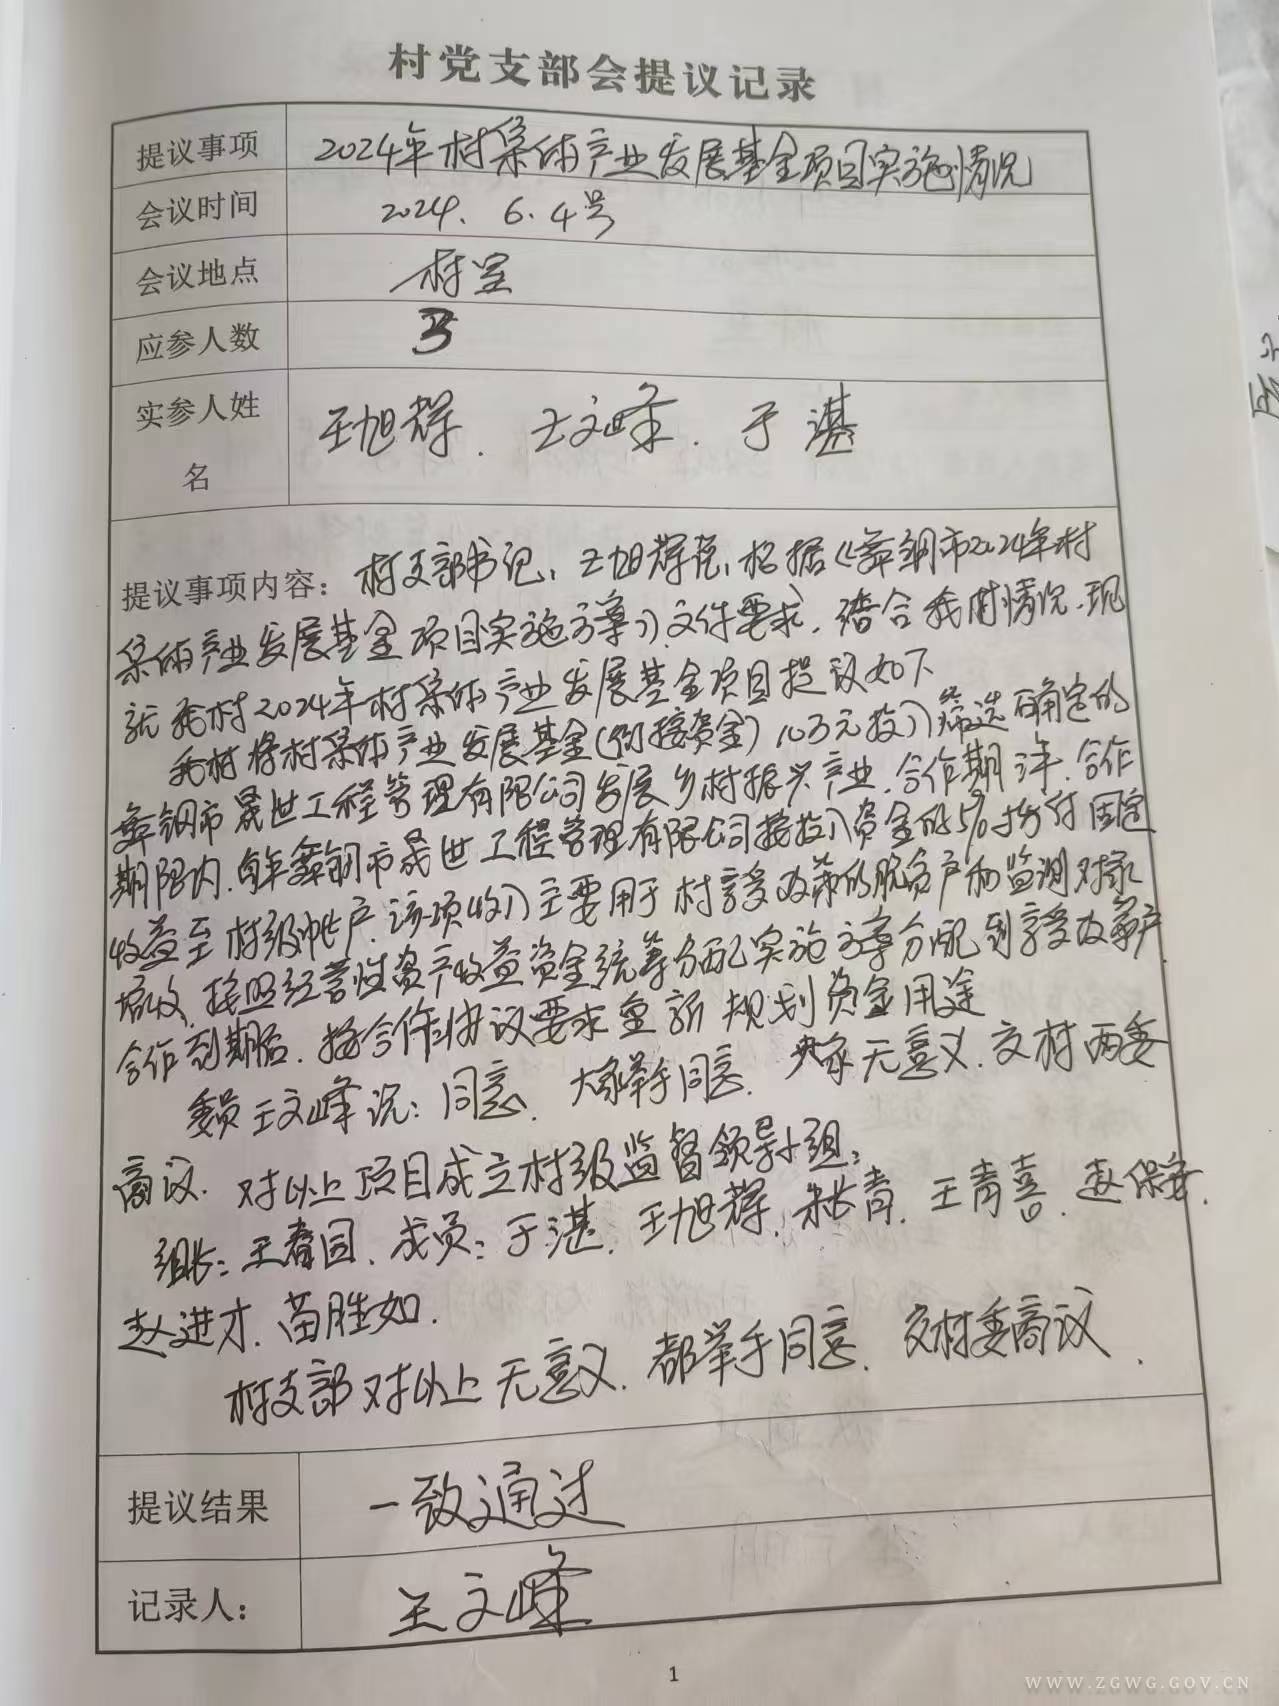 村党支部会提议记录
提议事项 2024年村集体产业发展基金项目实施情况
会议时间 2024.6.4号
会议地点 村室
应参人数 3
实参人姓名 王旭辉、王文峰、于湛
提议事项内容：村支部书记，王旭辉说，根据《舞钢市2024年村
集体产业发展基金项目实施方案》文件要求，结合我村情况，现
就我村2024年村集体产业发展基金项目提议如下
我村将村集体产业发展基金(衔接资金)10万元投入筛选确定的
舞钢市晟世工程管理有限公司发展乡村振兴产业，合作期 年，合作
期限内，每年舞钢市晟世工程管理有限公司按投入资金的5%拨付固定
收益至村级帐户，该项收入主要用于村享受政策的脱贫户和监测对象
增收，按照经营性资产收益资金统筹分配实施方案分配到享受政策户，
合作到期后，按合作协议要求重新规划资金用途
委员王文峰说：同意，大家举手同意，大家无意义，交村两委
商议，对以上项目成立村级监督领导小组：
组长：王春园，成员：于湛，王旭辉，朱长青，王青喜，赵保安，
赵进才，苗胜如.
村支部对以上无意义，都举手同意，交村委商议.
提议结果 一致通过
记录人： 王文峰
1
WWW.ZGWG.GOV.CN